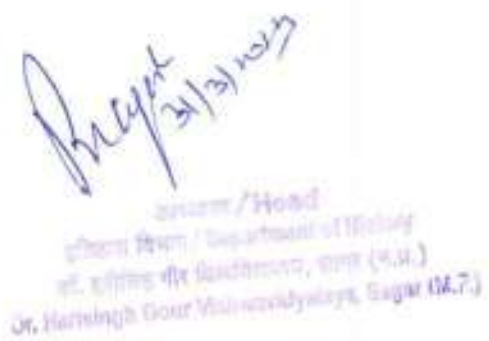 31/3/2023
अध्यक्ष / Head
इतिहास विभाग / Department of History
डॉ. हरीसिंह गौर विश्वविद्यालय, सागर (म.प्र.)
Dr. Harisingh Gour Vishwavidyalaya, Sagar (M.P.)